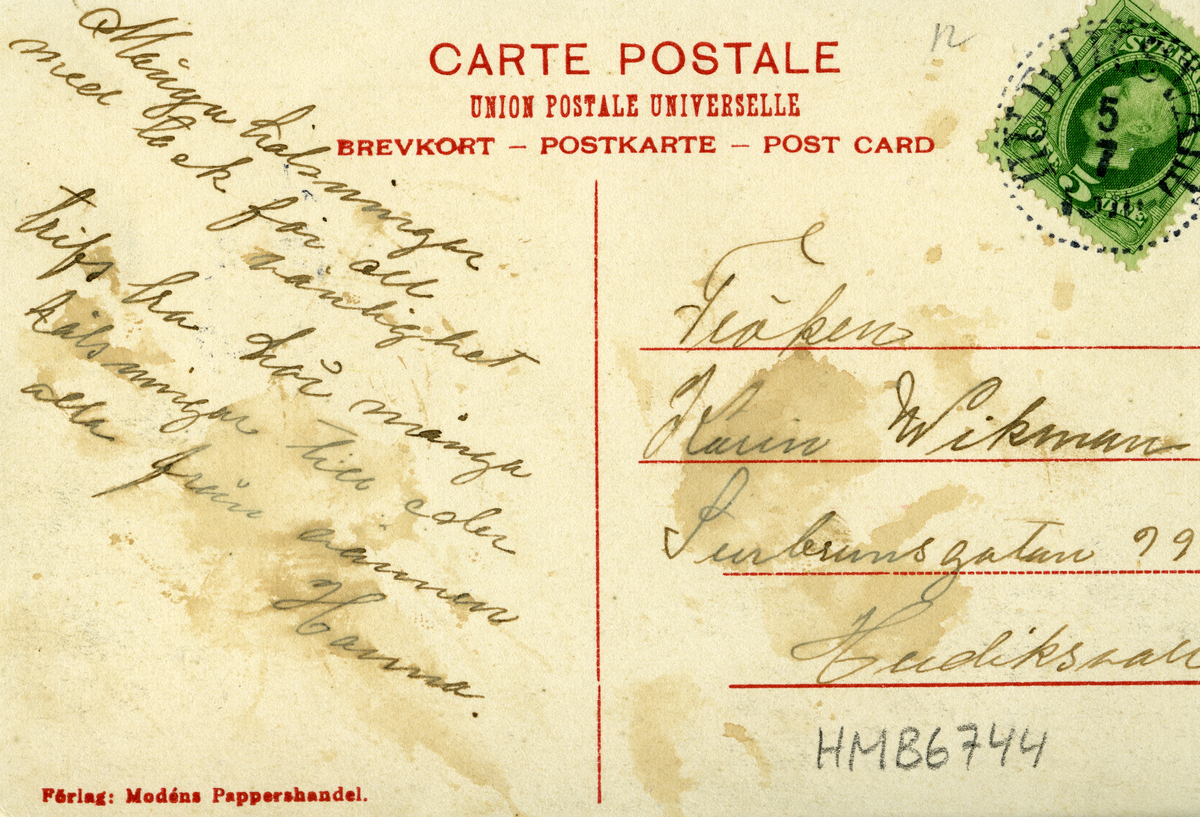 CARTE POSTALE
UNION POSTALE UNIVERSELLE
BREVKORT — POSTKARTE — POST CARD
Många hälsningar
med tack för all
vänlighet
trifs bra hör många
hälsningar till eder
alla från vännen
Hanna.
Fröken
Karin Wikman
Surbrunsgatan 99
Hudiksvall
HMB6744
Förlag: Modéns Pappershandel.
5
7